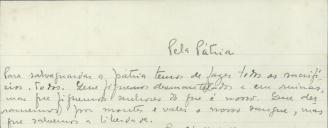 Pela Pátria
Para salvaguardar a pátria temos de fazer todos os sacrifí-
cios, todos. Que fiquemos desmantelados e em ruínas,
mas que fiquemos senhores do que é nosso. Que der-
ramemos por montes e vales o nosso sangue, mas
que salvemos a liberdade.